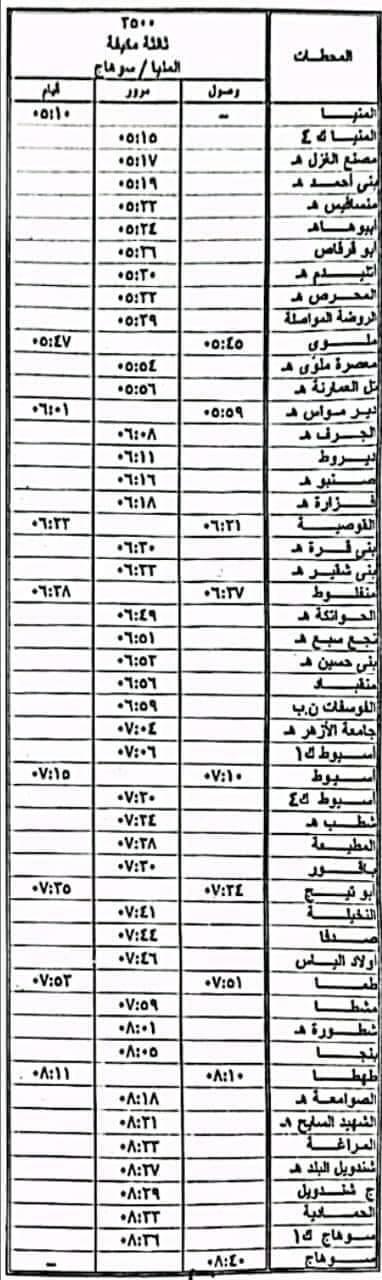 المحطات ٣٥٠٠
ثالثة مكيفة
المنيا / سوهاج
وصول مرور قيام
المنيا - ٠٥:١٠
المنيا ك ٤ ٠٥:١٥
مصنع الغزل هـ ٠٥:١٧
بنى أحمد هـ ٠٥:١٩
منسافيس هـ ٠٥:٢٢
أبيوها هـ ٠٥:٢٤
أبو قرقاص ٠٥:٢٦
أتليدم هـ ٠٥:٣٠
المحرص هـ ٠٥:٣٣
الروضة المواصلة ٠٥:٣٩
ملوى ٠٥:٤٥ ٠٥:٤٧
معصرة ملوى هـ ٠٥:٥٤
تل العمارنة هـ ٠٥:٥٦
دير مواس هـ ٠٥:٥٩ ٠٦:٠١
الجرف هـ ٠٦:٠٨
ديروط ٠٦:١١
صنبو هـ ٠٦:١٦
فزارة هـ ٠٦:١٨
القوصية ٠٦:٢١ ٠٦:٢٢
بنى قرة هـ ٠٦:٣٠
بنى شقير هـ ٠٦:٣٣
منفلوط ٠٦:٣٧ ٠٦:٣٨
الحواتكة هـ ٠٦:٤٩
نجع سبع هـ ٠٦:٥١
بنى حسين هـ ٠٦:٥٣
منقباد ٠٦:٥٦
الفوسفات ن.ب ٠٦:٥٩
جامعة الأزهر هـ ٠٧:٠٤
أسيوط ك١ ٠٧:٠٦
أسيوط ٠٧:١٠ ٠٧:١٥
أسيوط ك٤ ٠٧:٢٠
شطب هـ ٠٧:٢٤
المطيعة ٠٧:٢٨
باقور ٠٧:٣٠
أبو تيج ٠٧:٣٤ ٠٧:٣٥
النخيلة ٠٧:٤١
صدفا ٠٧:٤٤
اولاد الياس ٠٧:٤٦
طما ٠٧:٥١ ٠٧:٥٣
مشطا ٠٧:٥٩
شطورة هـ ٠٨:٠١
بنجا ٠٨:٠٥
طهطا ٠٨:١٠ ٠٨:١١
الصوامعة هـ ٠٨:١٨
الشهيد السايح هـ ٠٨:٢١
المراغة ٠٨:٢٣
شندويل البلد هـ ٠٨:٢٧
ج شندويل ٠٨:٢٩
الحمادية ٠٨:٣٣
سوهاج ك١ ٠٨:٣٦
سوهاج ٠٨:٤٠ -